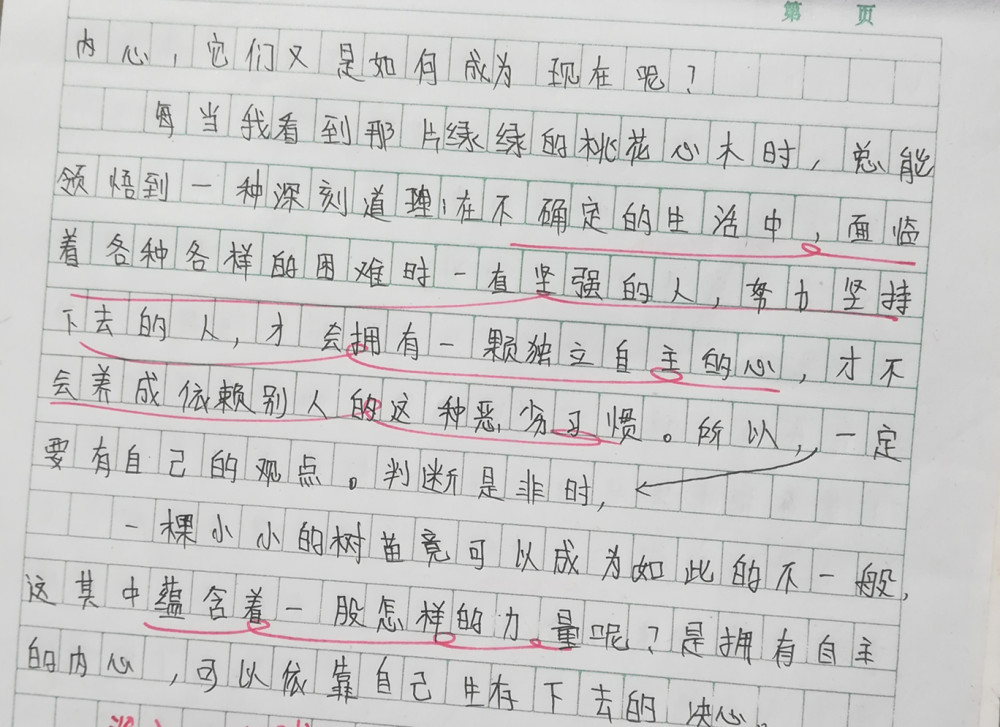 第 页
内心，它们又是如何成为现在呢？
每当我看到那片绿绿的桃花心木时，总能
领悟到一种深刻道理：在不确定的生活中，面临
着各种各样的困难时一直坚强的人，努力坚持
下去的人，才会拥有一颗独立自主的心，才不
会养成依赖别人的这种恶劣习惯。所以，一定
要有自己的观点。判断是非时，
一棵小小的树苗竟可以成为如此的不一般，
这其中蕴含着一股怎样的力量呢？是拥有自主
的内心，可以依靠自己生存下去的决心。